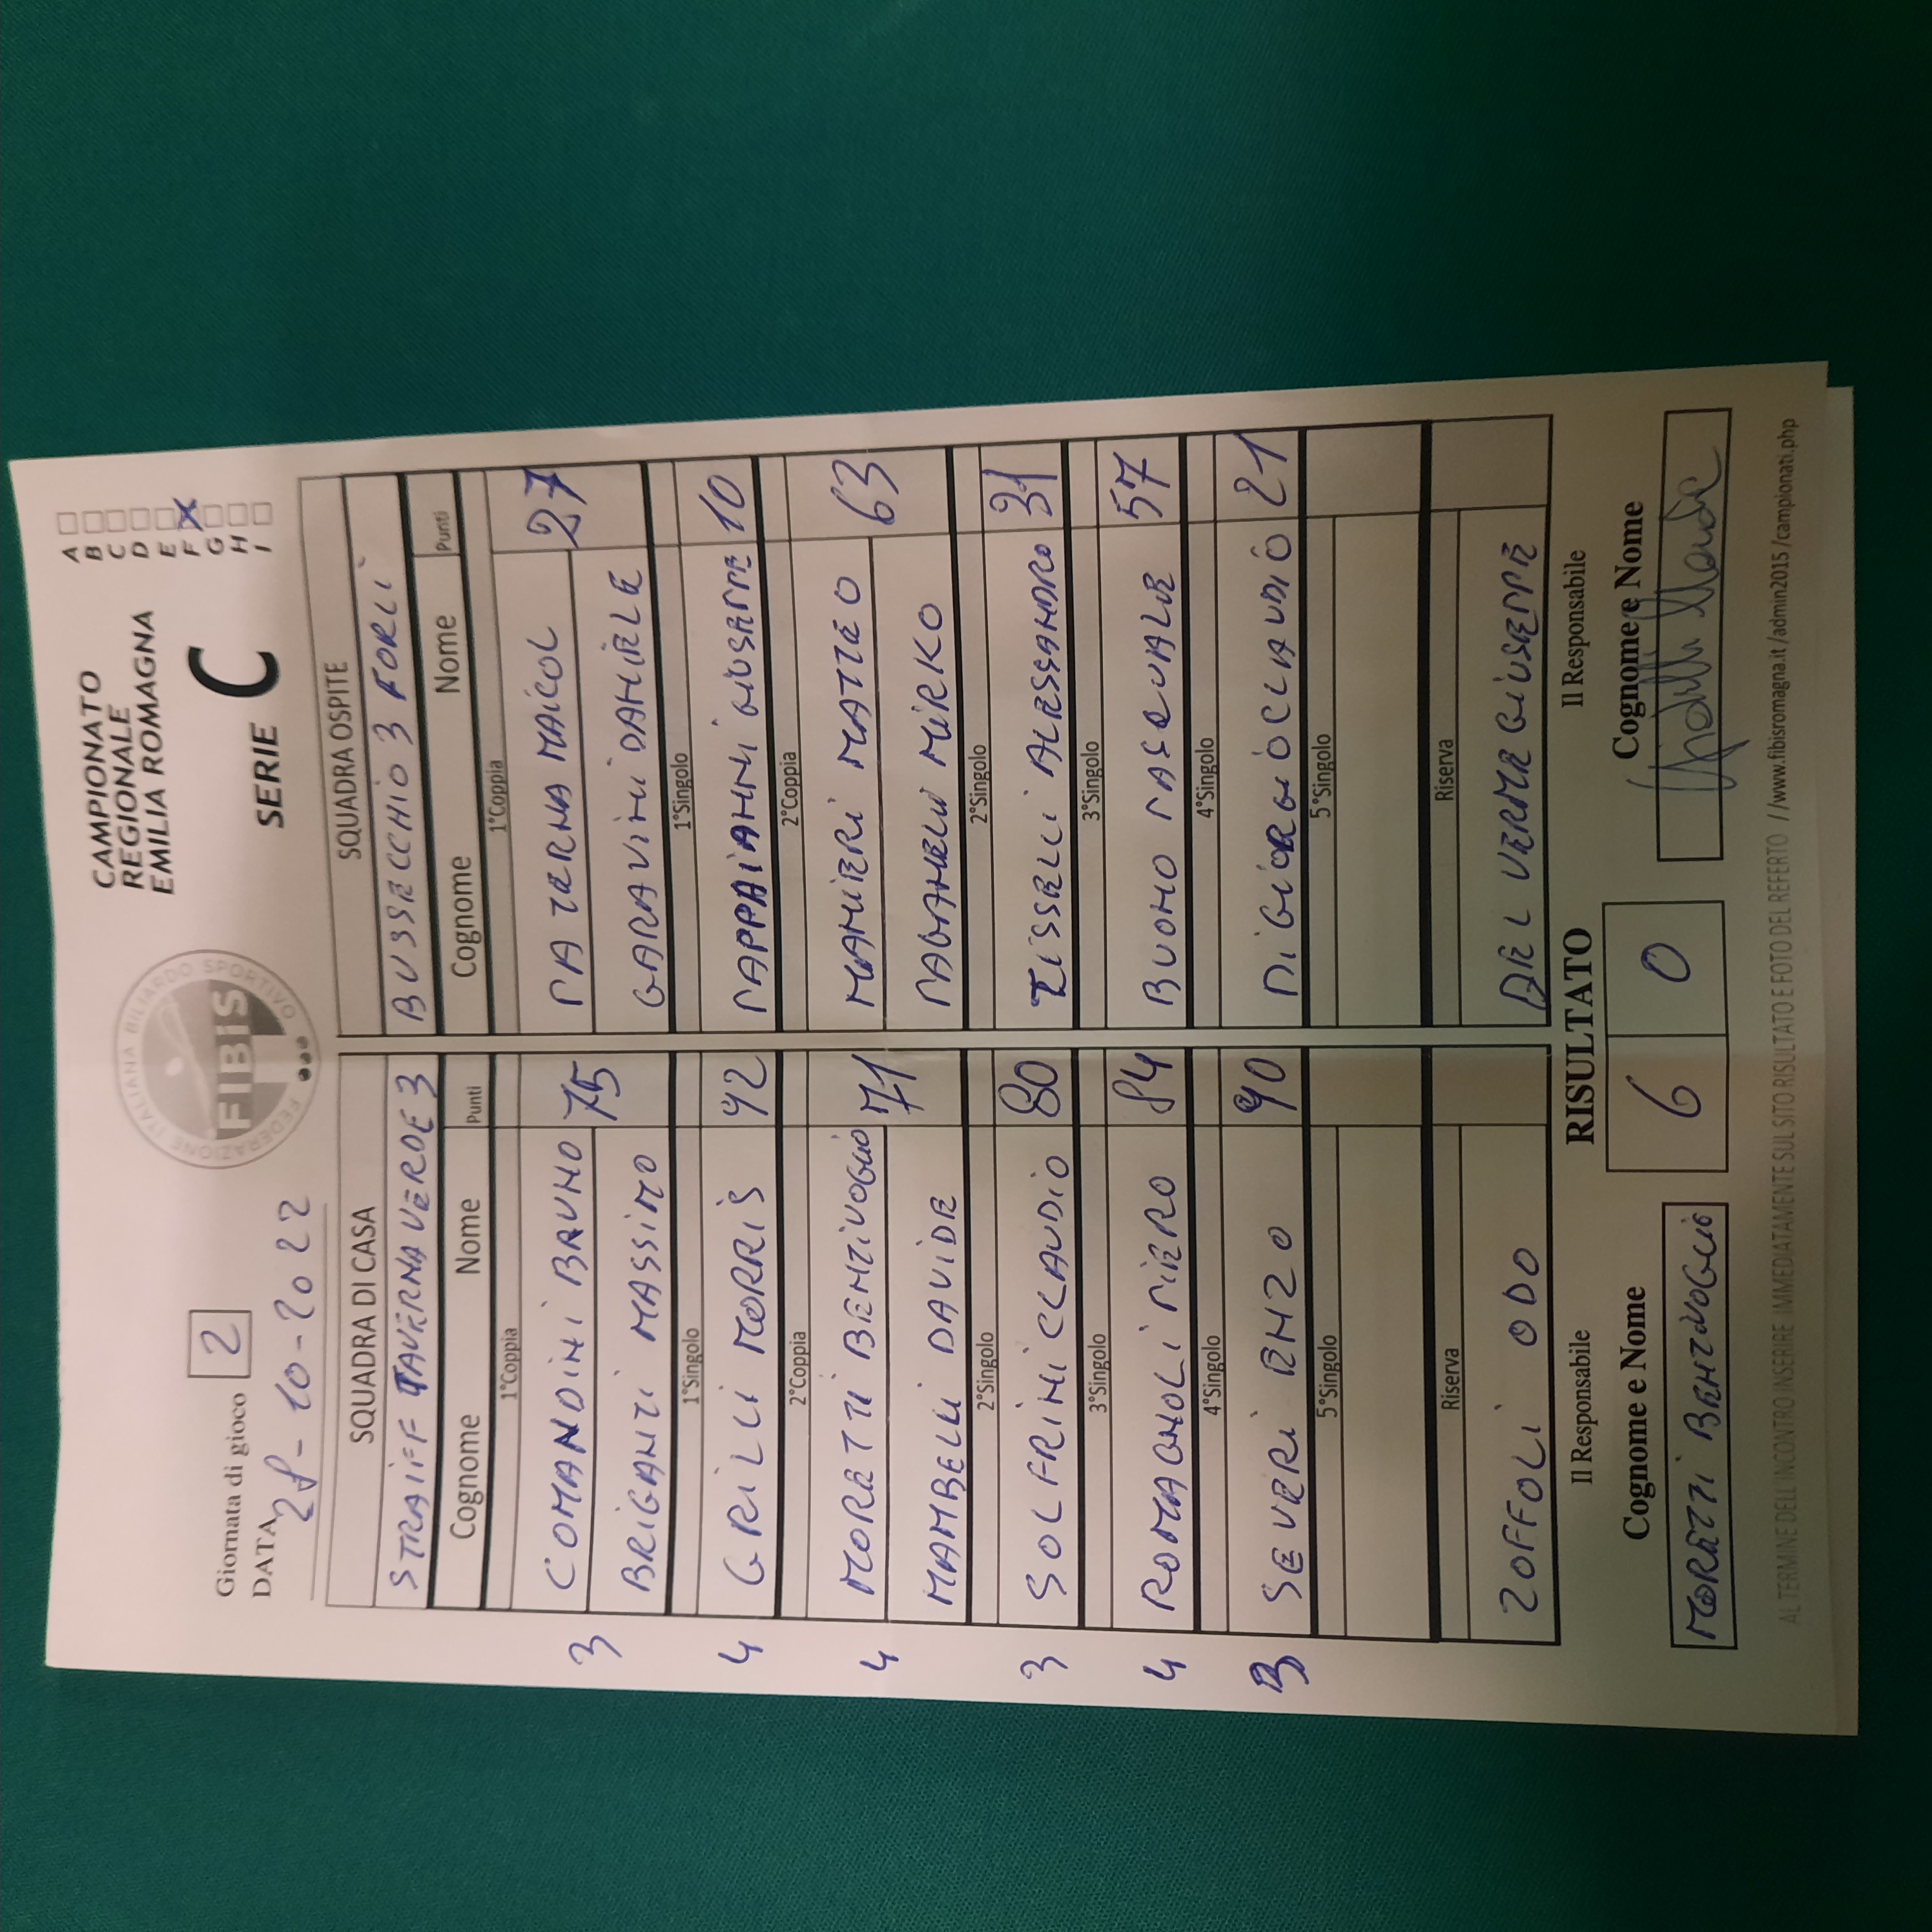 Giornata di gioco 2
DATA 28-10-2022
FEDERAZIONE ITALIANA BILIARDO SPORTIVO
FIBIS
CAMPIONATO
REGIONALE
EMILIA ROMAGNA
SERIE C
A
B
C
D
E
F X
G
H
I
SQUADRA DI CASA SQUADRA OSPITE
STRAIFF TAVERNA VERDE 3 BUSSECCHIO 3 FORLI
Cognome Nome Punti Cognome Nome Punti
1°Coppia 1°Coppia
3 COMANDINI BRUNO 75 PATERNA MAICOL 27
BRIGANTI MASSIMO GARAVINI DANIELE
1°Singolo 1°Singolo
4 GRILLI MORRIS 92 PAPPAIANNI GIUSEPPE 10
2°Coppia 2°Coppia
4 MORETTI BENTIVOGLIO 71 MANIERI MATTEO 63
MAMBELLI DAVIDE PAGANELLI MIRKO
2°Singolo 2°Singolo
3 SOLFRINI CLAUDIO 80 TISSELLI ALESSANDRO 31
3°Singolo 3°Singolo
4 ROMAGNOLI PIERO 84 BUONO PASQUALE 57
4°Singolo 4°Singolo
3 SEVERI RENZO 90 DI GIORGIO CLAUDIO 21
5°Singolo 5°Singolo
Riserva Riserva
ZOFFOLI ODO DEL VERME GIUSEPPE
Il Responsabile RISULTATO Il Responsabile
Cognome e Nome 6 0 Cognome e Nome
MORETTI BENTIVOGLIO
AL TERMINE DELL'INCONTRO INSERIRE IMMEDIATAMENTE SUL SITO RISULTATO E FOTO DEL REFERTO //www.fibisromagna.it/admin2015/campionati.php